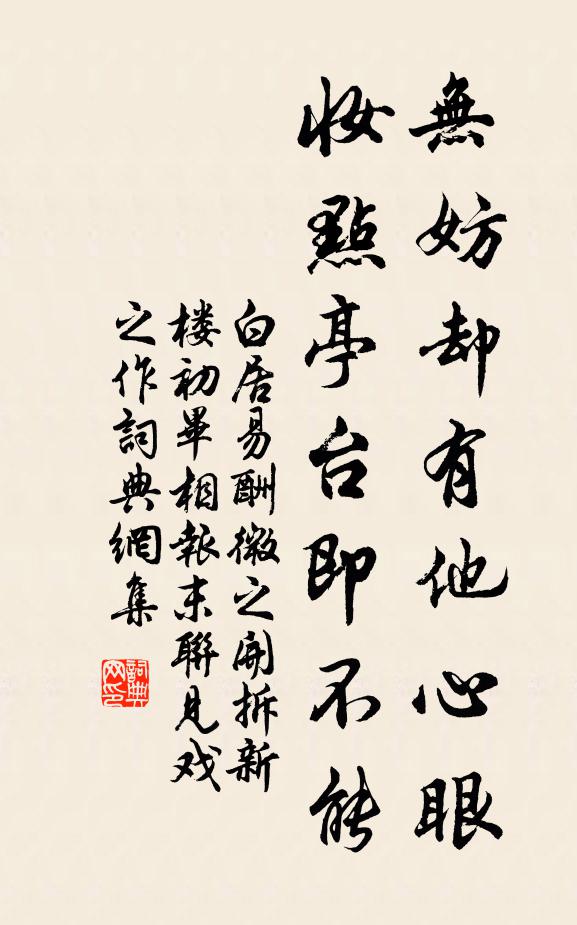 無妨却有他心眼
妝點亭台即不能
白居易酬微之開拆新
楼初畢相報末聯見戏
之作詞典網集
詞典
网印